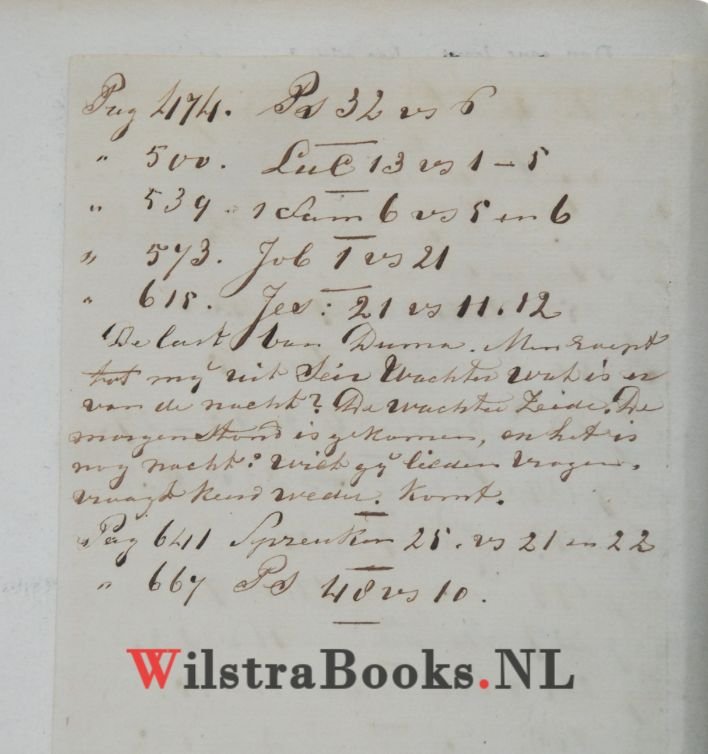 Pag 474. Ps 32 vs 6
" 500. Luc 13 vs 1-5
" 539. 1 Sam 6 vs 5 en 6
" 573. Job 1 vs 21
" 618. Jes: 21 vs 11.12
De last van Duma. Men roept
tot mij uit Seir Wachter wat is er
van de nacht? De wachter zeide. De
morgenstond is gekomen, en het is
nog nacht: wilt gij lieden vragen,
vraagt keerd weder. Komt.
Pag 641 Spreuken 25. vs 21 en 22
" 667 Ps 48 vs 10.
WilstraBooks.NL